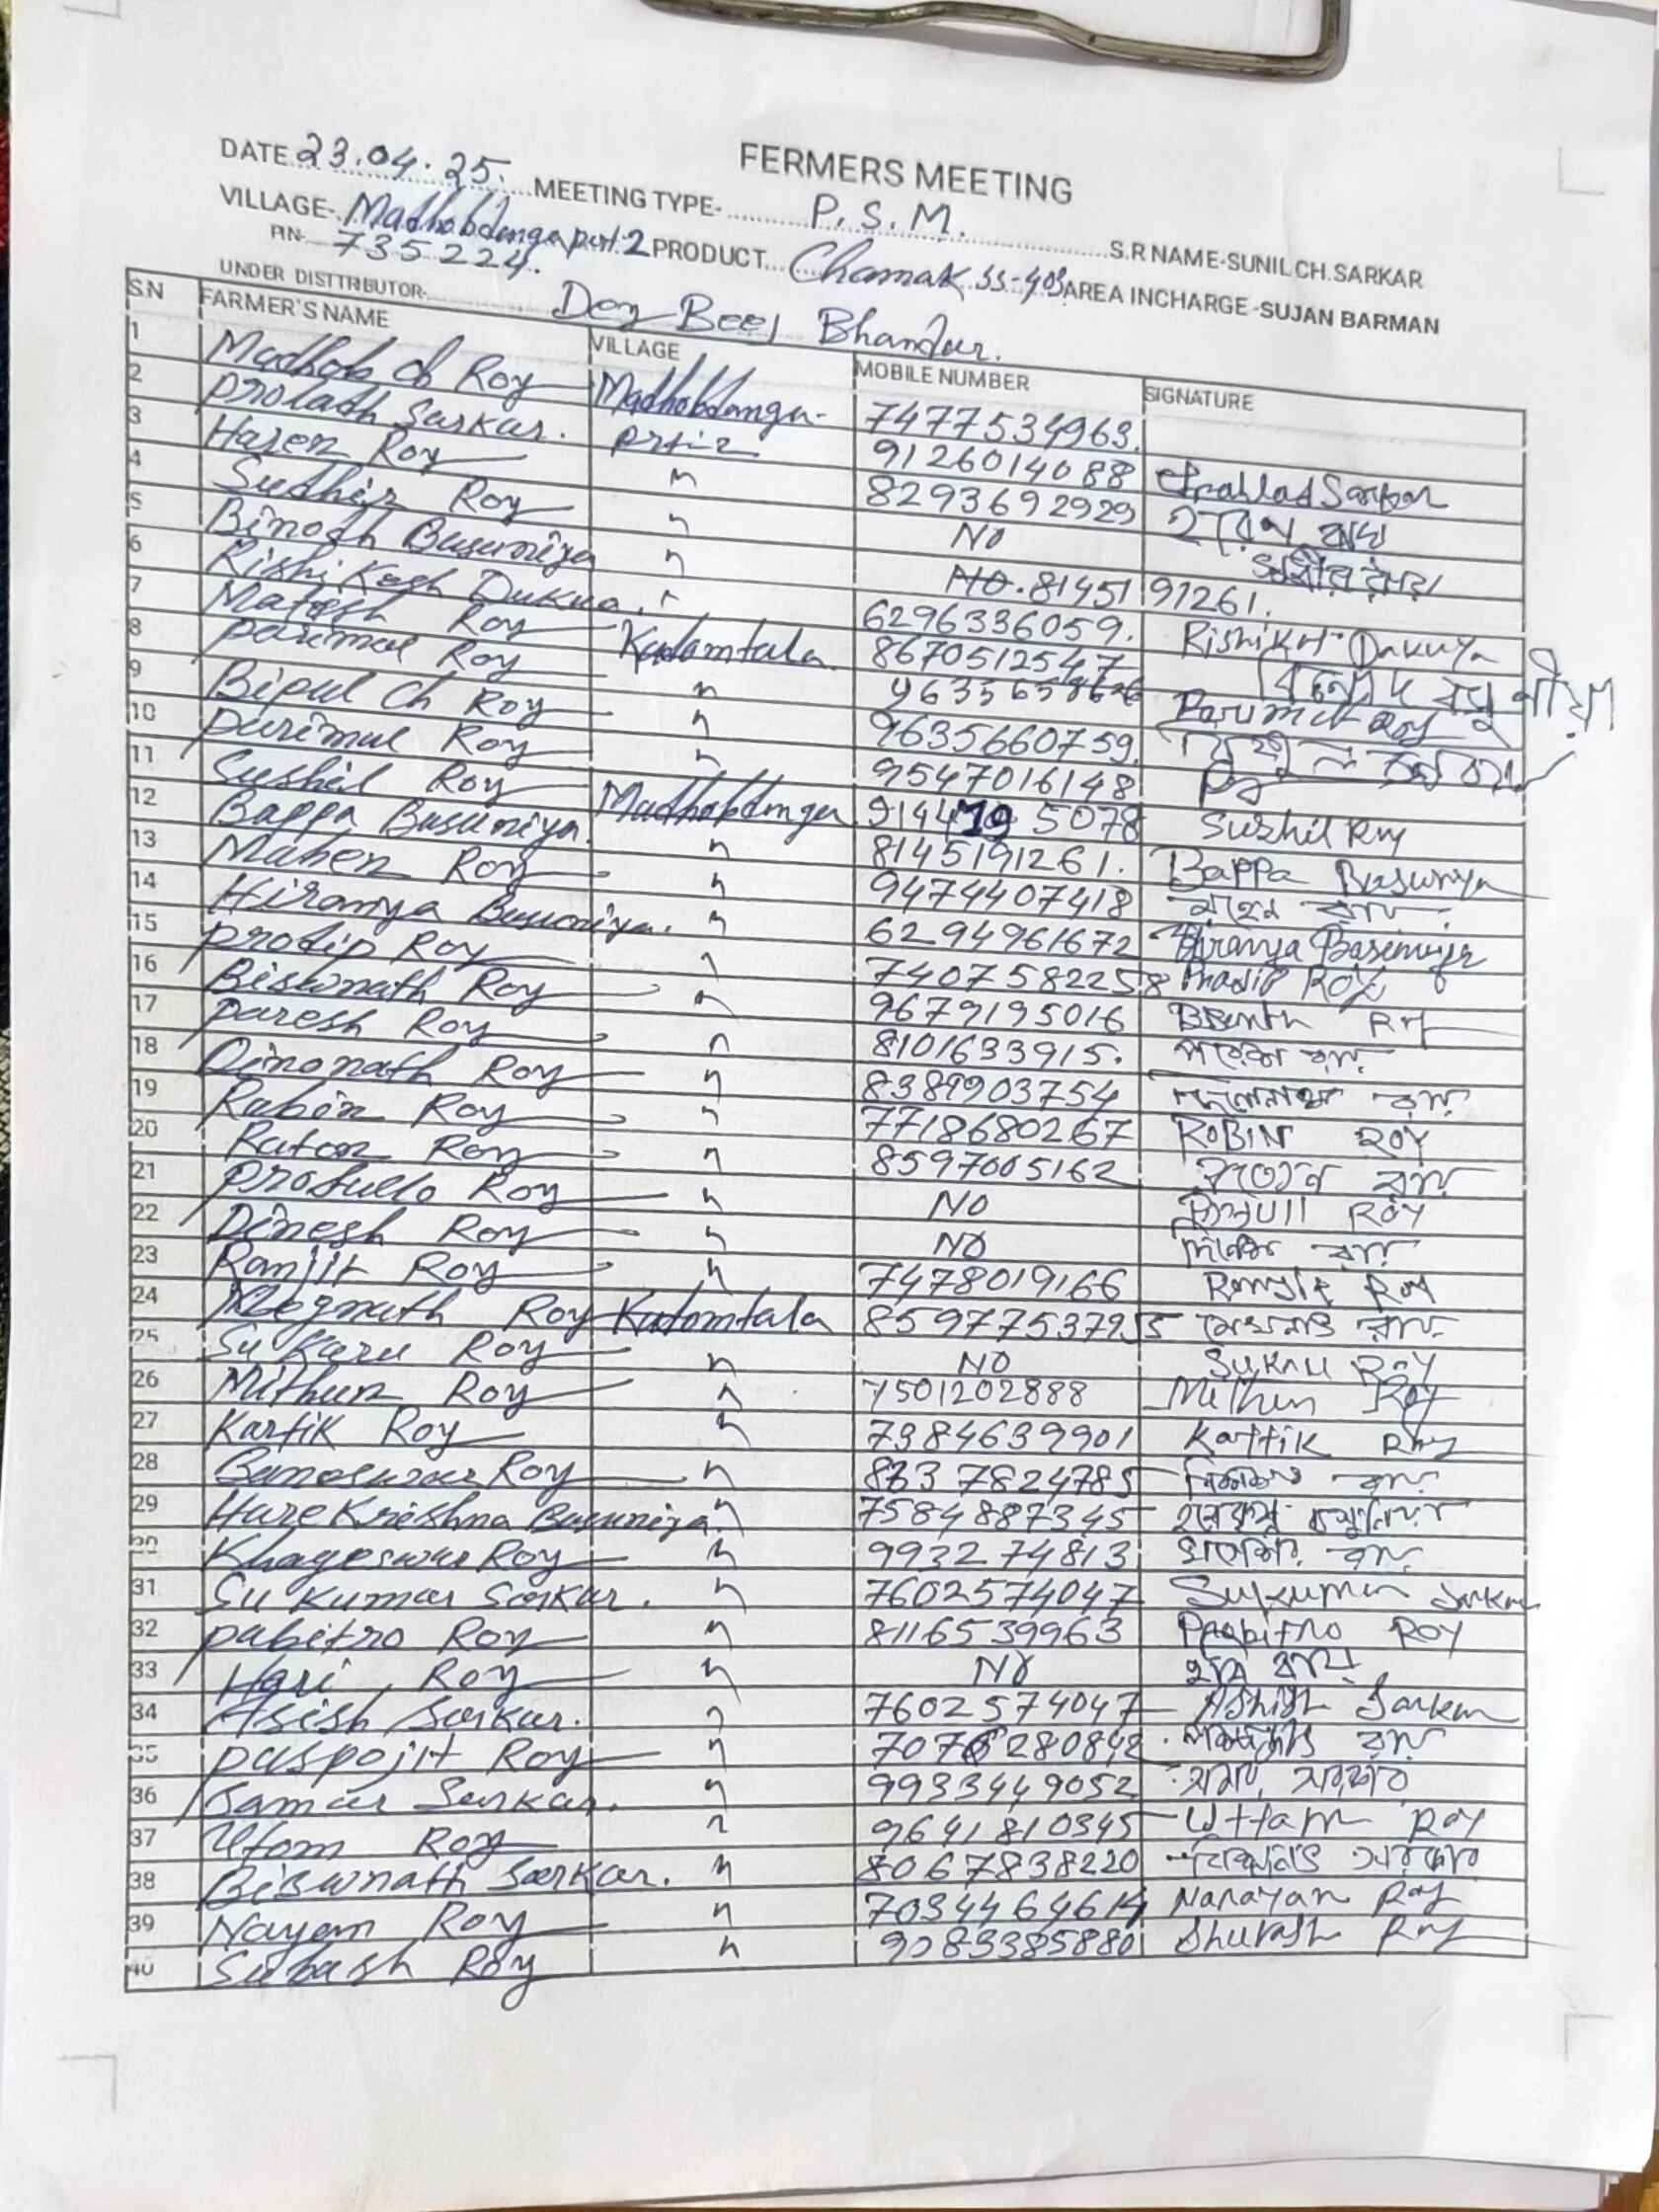 FERMERS MEETING
DATE 23.04.25. MEETING TYPE- P.S.M. S.R NAME-SUNIL CH.SARKAR
VILLAGE- Madhobdanga part.2 PRODUCT Chamak SS-403 AREA INCHARGE -SUJAN BARMAN
PIN- 735224.
UNDER DISTTRIBUTOR- Dey Beej Bhandar.
SN FARMER'S NAME VILLAGE MOBILE NUMBER SIGNATURE
1 Madhob ch Roy Madhobdanga- 7477534963.
2 Proladh Sarkar. 9126014088 Prahlad Sarkar
3 Haren Roy 〃 8293692929 হরেন রায়
4 Sudhir Roy 〃 NO সুধীর রায়
5 Binodh Basuniya 〃 NO. 8145191261.
6 Rishi Kesh Dukua. 〃 6296336059. Rishikesh Dakuya
7 Matesh Roy Kadamtala. 8670512547
8 Parimal Roy 〃 Parimal Roy
9 Bipul Ch Roy 〃 9635660759.
10 Parimal Roy 〃 9547016148
11 Sushil Roy Madhobdanga 9144795078 Sushil Roy
12 Bappa Basuniya. 〃 8145191261. Bappa Basuniya
13 Mahen Roy 〃 9474407418 মহেন রায়
14 Hiranya Basuniya. 〃 6294961672 Hiranya Basuniya
15 Prodip Roy 〃 7407582258 Pradip Roy
16 Biswnath Roy 〃 9679195016 Roy
17 Paresh Roy 〃 8101633915. পরেশ রায়
18 Dinonath Roy 〃 8389903754 দিনোনাথ রায়
19 Rabin Roy 〃 7718680267 ROBIN ROY
20 Raton Roy 〃 8597005162 রতন রায়
21 Profullo Roy 〃 NO Roy
22 Dinesh Roy 〃 NO দিনেশ রায়
23 Ranjit Roy 〃 7478019166 Ranjit Roy
24 Megnath Roy Kadomtala 8597753795 মেঘনাথ রায়
25 Su Karu Roy 〃 NO Sukru Roy
26 Mithun Roy 〃 7501202888 Mithun Roy
27 Kartik Roy 〃 7384639901 Kartik Roy
28 Roy 〃 7824785 রায়
29 Hare Krishna Basuniya. 〃 7584887345 হরেকৃষ্ণ বসুনিয়া
30 Khageswar Roy 〃 993274813 রায়
31 Su Kumar Sarkar. 〃 7602574047 Sukumar Sarkar
32 Pabitro Roy 〃 8116539963 Pabitro Roy
33 Hari Roy 〃 NO হরি রায়
34 Asish Sarkar. 〃 7602574047 Ashish Sarkar
35 Puspojit Roy 〃 রায়
36 Samar Sarkar. 〃 9933449052 সমর সরকার
37 Utom Roy 〃 9641810345 Uttam Roy
38 Biswnath Sarkar. 〃 8067838220 বিশ্বনাথ সরকার
39 Nayan Roy 〃 7034464614 Narayan Roy
40 Subash Roy 〃 9083385880 Shubash Roy